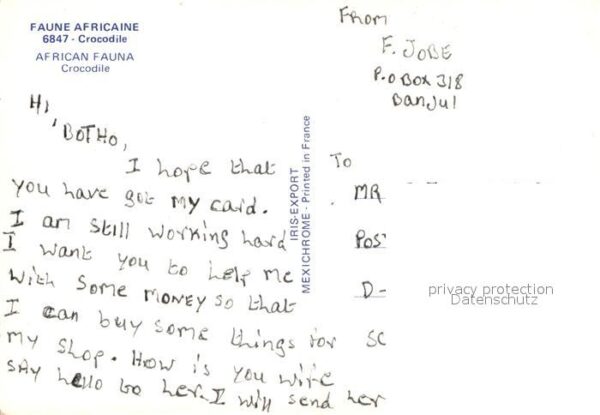 FAUNE AFRICAINE
6847 - Crocodile
AFRICAN FAUNA
Crocodile
Hi
'BOTHO,
I hope that
you have got my card.
I am still working hard
I want you to help me
with some money so that
I can buy some things for
my shop. How is you wife
say hello to her. I will send her
IRIS-EXPORT
MEXICHROME - Printed in France
From
F. JOBE
P.o Box 318
Banjul
To
MR
POS
D-
SC
privacy protection
Datenschutz